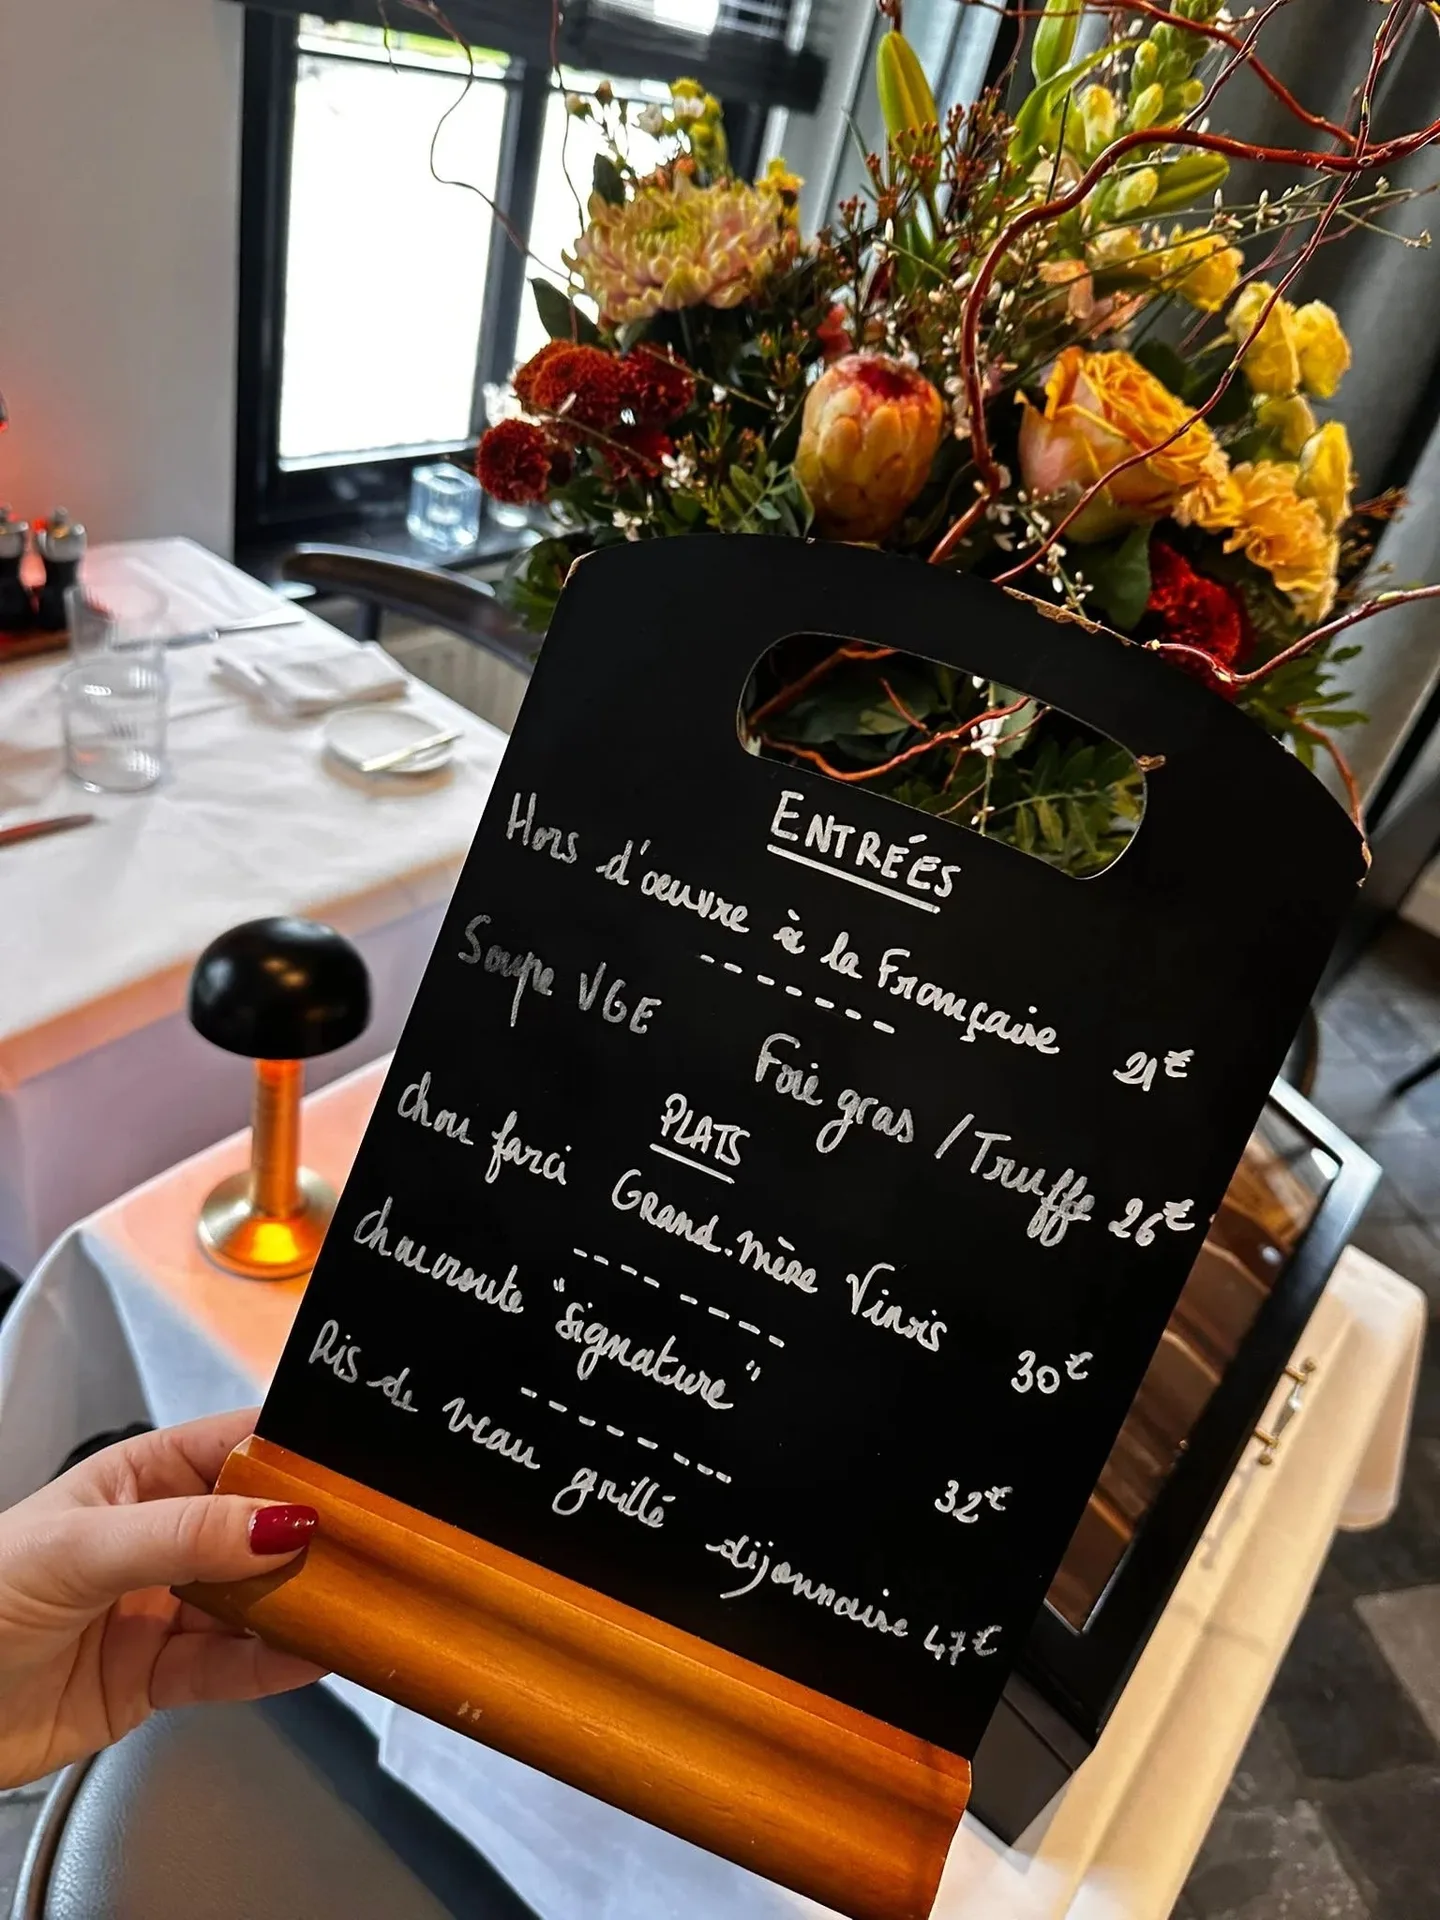 ENTRÉES
Hors d'œuvre à la Française 21€
Soupe VGE Foie gras / Truffe 26€
PLATS
chou farci Grand-mère Vinis 30€
choucroute "Signature" 32€
Ris de veau grillé dijonnaise 47€